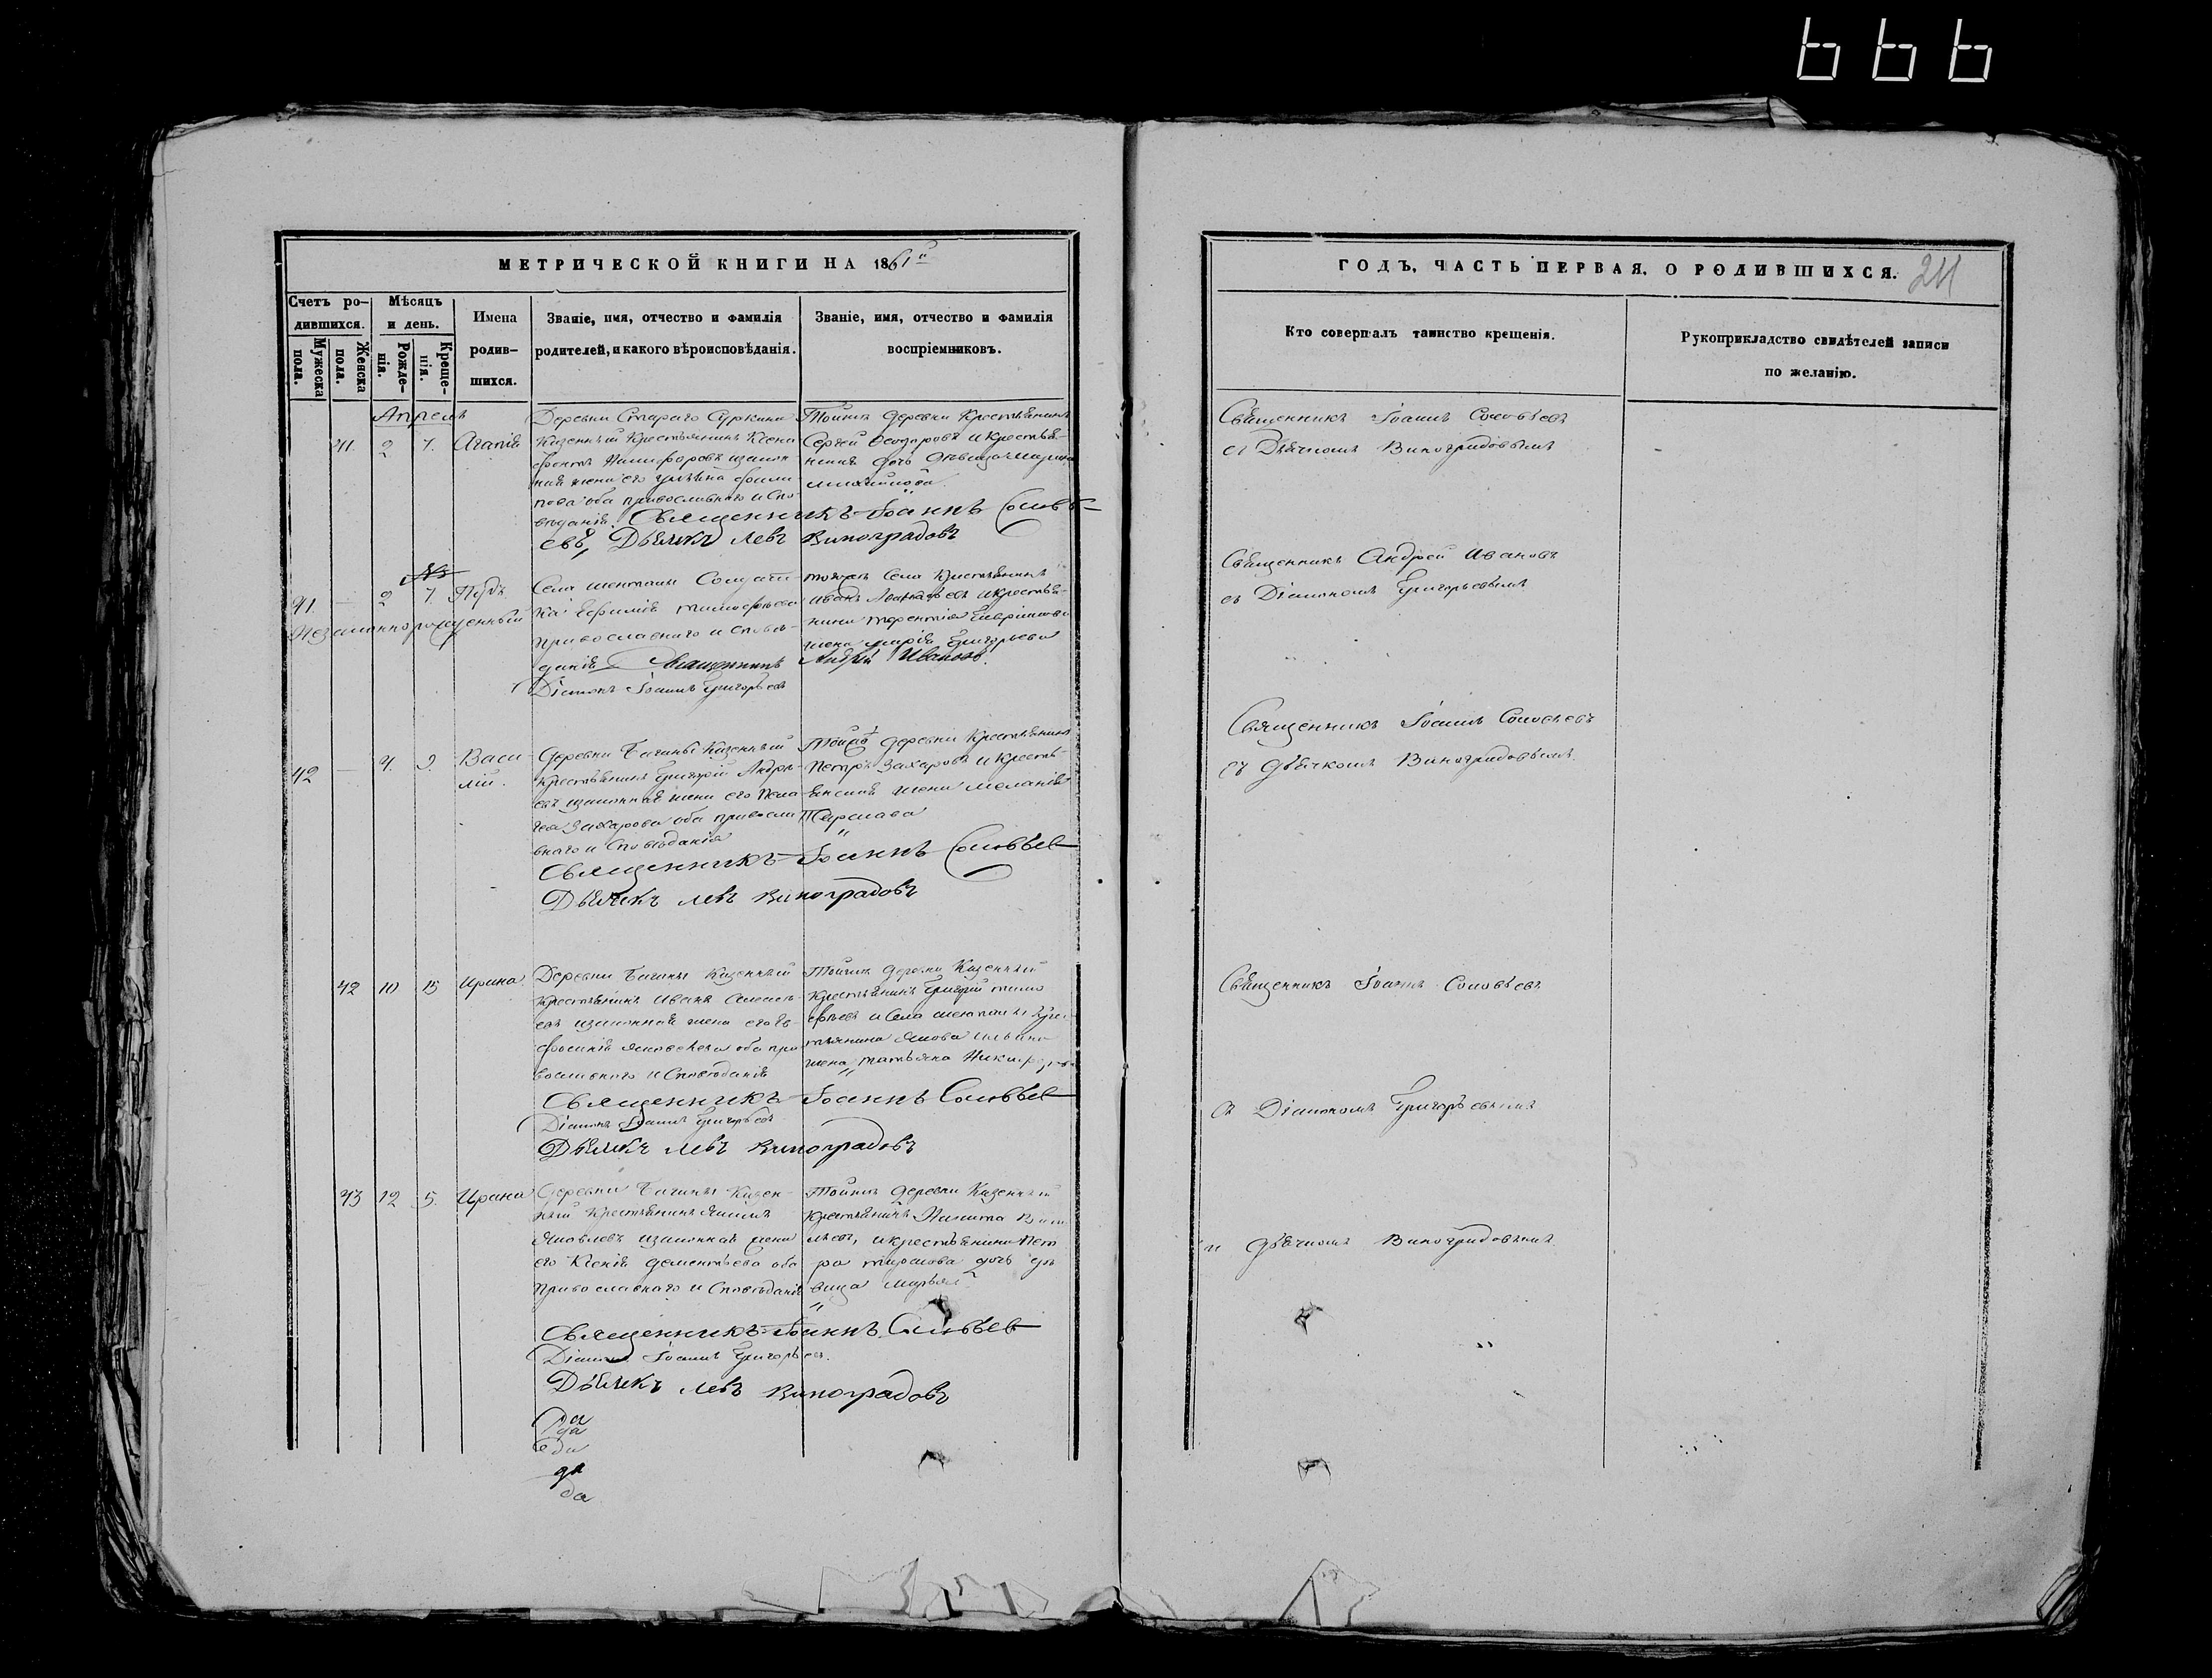 666
МЕТРИЧЕСКОЙ КНИГИ НА 1861й
Счетъ ро-
дившихся.
Мужеска
пола.
Женска
пола.
Мѣсяцъ
и день.
Рожде-
нія.
Креще-
нія.
Имена
родив-
шихся.
Званіе, имя, отчество и фамилія
родителей, и какого вѣроисповѣданія.
Званіе, имя, отчество и фамилія
воспріемниковъ.
Апрель
41. 2 7. Агапія
Деревни Стараго Суркина
Казенный Крестьянинъ Ксено
фонтъ Никифоровъ законн
ная жена его Ульяна Фили
пова оба православнаго испо
веданія. Священникъ Іоаннъ Соловь
евъ, Дьячикъ Левъ Виноградовъ
Тойже деревни Крестьянинъ
Сергей Феодоровъ и крестья-
нина дочь девица
41. — 2 7. Пудъ
Незаконнорожденный
Села Шенталы Солдат
ка Ефимія Тимофеева
Православнаго исповѣ-
данія Священникъ Андрей Ивановъ.
Діаконъ Іоаннъ Григорьевъ
тогоже Села Крестьянинъ
Иванъ и крестья-
нина Терентія Гаврилова
жена Марія Григорьева
42 — 4. 9. Васи
лій.
Деревни Багины Казенный
крестьянинъ Григорій Андре
евъ законная жена его Пела
гея Захарова оба правосла
внаго исповѣданія
Священникъ Іоаннъ Соловьев
Дьячикъ Левъ Виноградовъ
Тойже деревни Крестьянинъ
Петръ Захаровъ и кресть-
янская жена Меланія
42 10 15 Ирина
Деревни Багины Казенный
Крестьянинъ Иванъ
евъ законная жена его Ев-
фросинія Яковлева оба пра
вославнаго исповѣданія
Священникъ Іоаннъ Соловьев
Діаконъ Іоаннъ Григорьевъ
Дьячикъ Левъ Виноградовъ
Тойже деревни Казенный
крестьянинъ Григорій Тимо
фѣевъ и Села Шенталы крес-
тьянина Якова
жена, Татьяна Никифорова
43 12 5. Ирина
Деревни Багины Казен-
ный Крестьянинъ Якимъ
Яковлевъ законная жена
его Ксенія Дементьева оба
Православнаго исповѣданія
Священникъ Іоаннъ Соловьев
Діаконъ Іоаннъ Григорьев.
Дьячикъ Левъ Виноградовъ
Тойже деревни Казенный
крестьянинъ Никита
и крестьянина Пет
ра дочь дѣ
вица Марья
да
да
да
да
ГОДЪ, ЧАСТЬ ПЕРВАЯ, О РОДИВШИХСЯ.
241
Кто совершалъ таинство крещенія.
Рукоприкладство свидѣтелей записи
по желанію.
Священникъ Іоаннъ Соловьевъ
съ Дьячкомъ Виноградовымъ
Священникъ Андрей Ивановъ
съ Діакономъ Григорьевымъ
Священникъ Іоаннъ Соловьевъ
съ дьячкомъ Виноградовымъ.
Священникъ Іоаннъ Соловьевъ
съ Діакономъ Григорьевымъ
и дьячкомъ Виноградовымъ